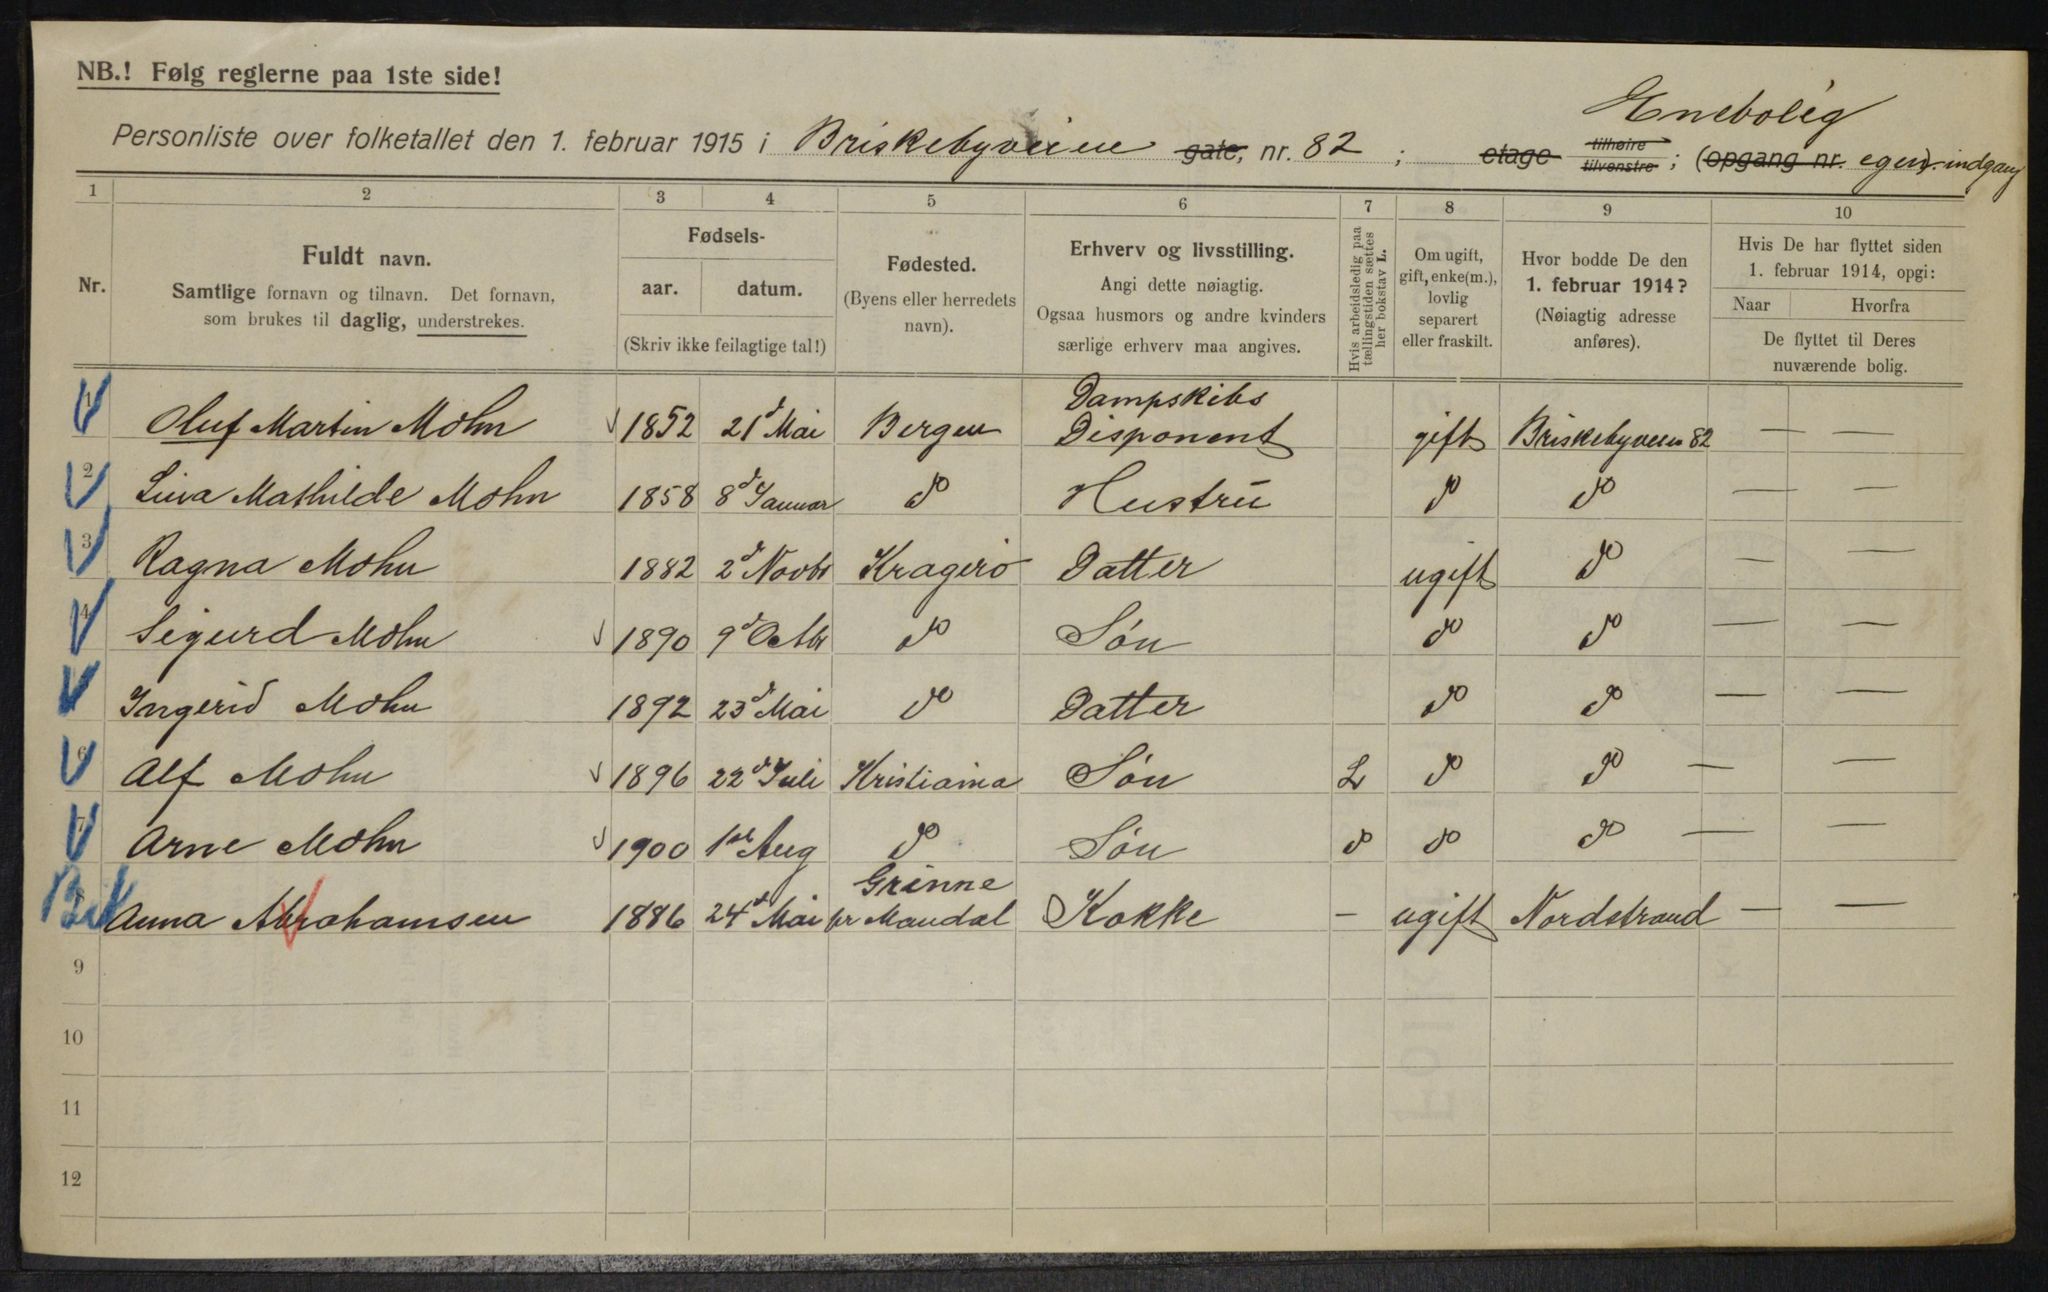 NB.! Følg reglerne paa 1ste side!
Enebolig
Personliste over folketallet den 1. februar 1915 i Briskebyveien gate, nr. 82 ; etage tilhøire tilvenstre ; (opgang nr. egen). indgang
1 2 3 4 5 6 7 8 9 10
Nr.
Fuldt navn.
Samtlige fornavn og tilnavn. Det fornavn,
som brukes til daglig, understrekes.
Fødsels-
aar. datum.
(Skriv ikke feilagtige tal!)
Fødested.
(Byens eller herredets
navn).
Erhverv og livsstilling.
Angi dette nøiagtig.
Ogsaa husmors og andre kvinders
særlige erhverv maa angives.
Hvis arbeidsledig paa
tællingstiden sættes
her bokstav L.
Om ugift,
gift, enke(m.),
lovlig
separert
eller fraskilt.
Hvor bodde De den
1. februar 1914?
(Nøiagtig adresse
anføres).
Hvis De har flyttet siden
1. februar 1914, opgi:
Naar Hvorfra
De flyttet til Deres
nuværende bolig.
Dampskibs
1 Oluf Martin Mohn 1852 21d Mai Bergen Disponent gift Briskebyveien 82 — —
2 Lina Mathilde Mohn 1858 8d Januar do Hustru do do — —
3 Ragna Mohn 1882 2d Novbr Kragerö Datter ugift do — —
4 Sigurd Mohn 1890 9d Octbr do Sön do do — —
Ingerid Mohn 1892 23d Mai do Datter do do — —
6 Alf Mohn 1896 22d Juli Kristiania Sön L do do — —
7 Arne Mohn 1900 1ste Aug do Sön do do do — —
Grinne
Anna Abrahamsen 1886 24d Mai pr Mandal Kokke – ugift Nordstrand — —
9
10
11
12